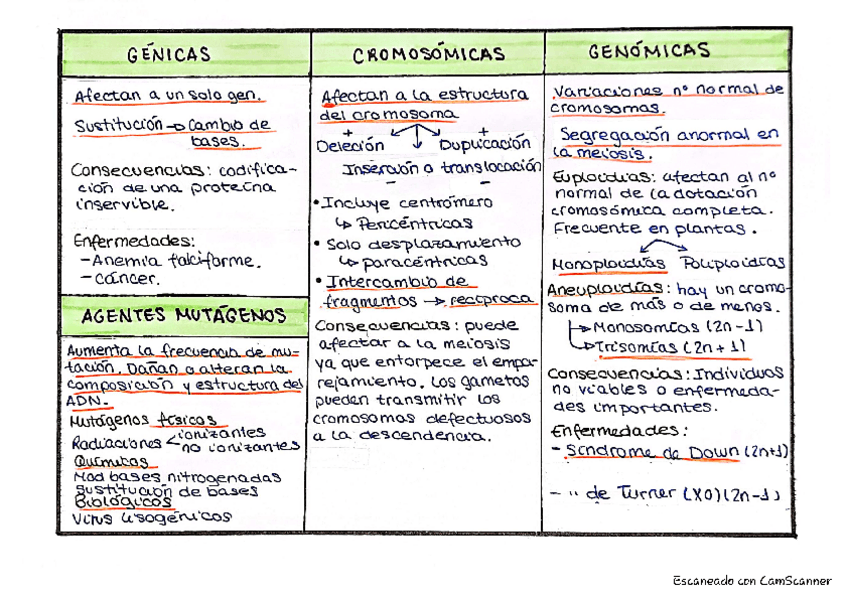 GÉNICAS
Afectan a un solo gen.
Sustitución → Cambio de
bases.
Consecuencias: codifica-
ción de una proteína
inservible.
Enfermedades:
- Anemia falciforme.
- cáncer.
AGENTES MUTÁGENOS
Aumenta la frecuencia de mu-
tación. Dañan o alteran la
composición y estructura del
ADN.
Mutágenos físicos
Radiaciones < ionizantes
no ionizantes
Químicos
Mod bases nitrogenadas
Sustitución de bases
Biológicos
Virus lisogénicos
CROMOSÓMICAS
Afectan a la estructura
del cromosoma
+ +
Deleción Duplicación
Inserción o translocación
- -
• Incluye centrómero
↳ Pericéntricas
• Solo desplazamiento
↳ paracéntricas
• Intercambio de
fragmentos → recíproca
Consecuencias: puede
afectar a la meiosis
ya que entorpece el empa-
rejamiento. Los gametos
pueden transmitir los
cromosomas defectuosos
a la descendencia.
GENÓMICAS
Variaciones nº normal de
cromosomas.
Segregación anormal en
la meiosis.
Euploidías: afectan al nº
normal de la dotación
cromosómica completa.
Frecuente en plantas.
Monoploidías Poliploidías
Aneuploidías: hay un cromo-
soma de más o de menos.
→ Monosomías (2n-1)
→ Trisomías (2n+1)
Consecuencias: Individuos
no viables o enfermeda-
des importantes.
Enfermedades:
- Síndrome de Down (2n+1)
- " de Turner (X0)(2n-1)
Escaneado con CamScanner